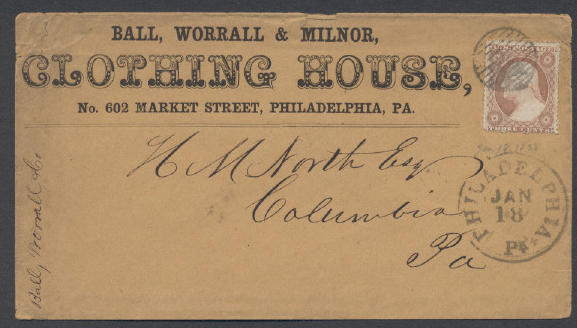 BALL, WORRALL & MILNOR,
CLOTHING HOUSE,
No. 602 MARKET STREET, PHILADELPHIA, PA.
H M North Esq
Columbia
Pa
PHILADELPHIA
JAN
18
Pa
Ball, Worrall & Co